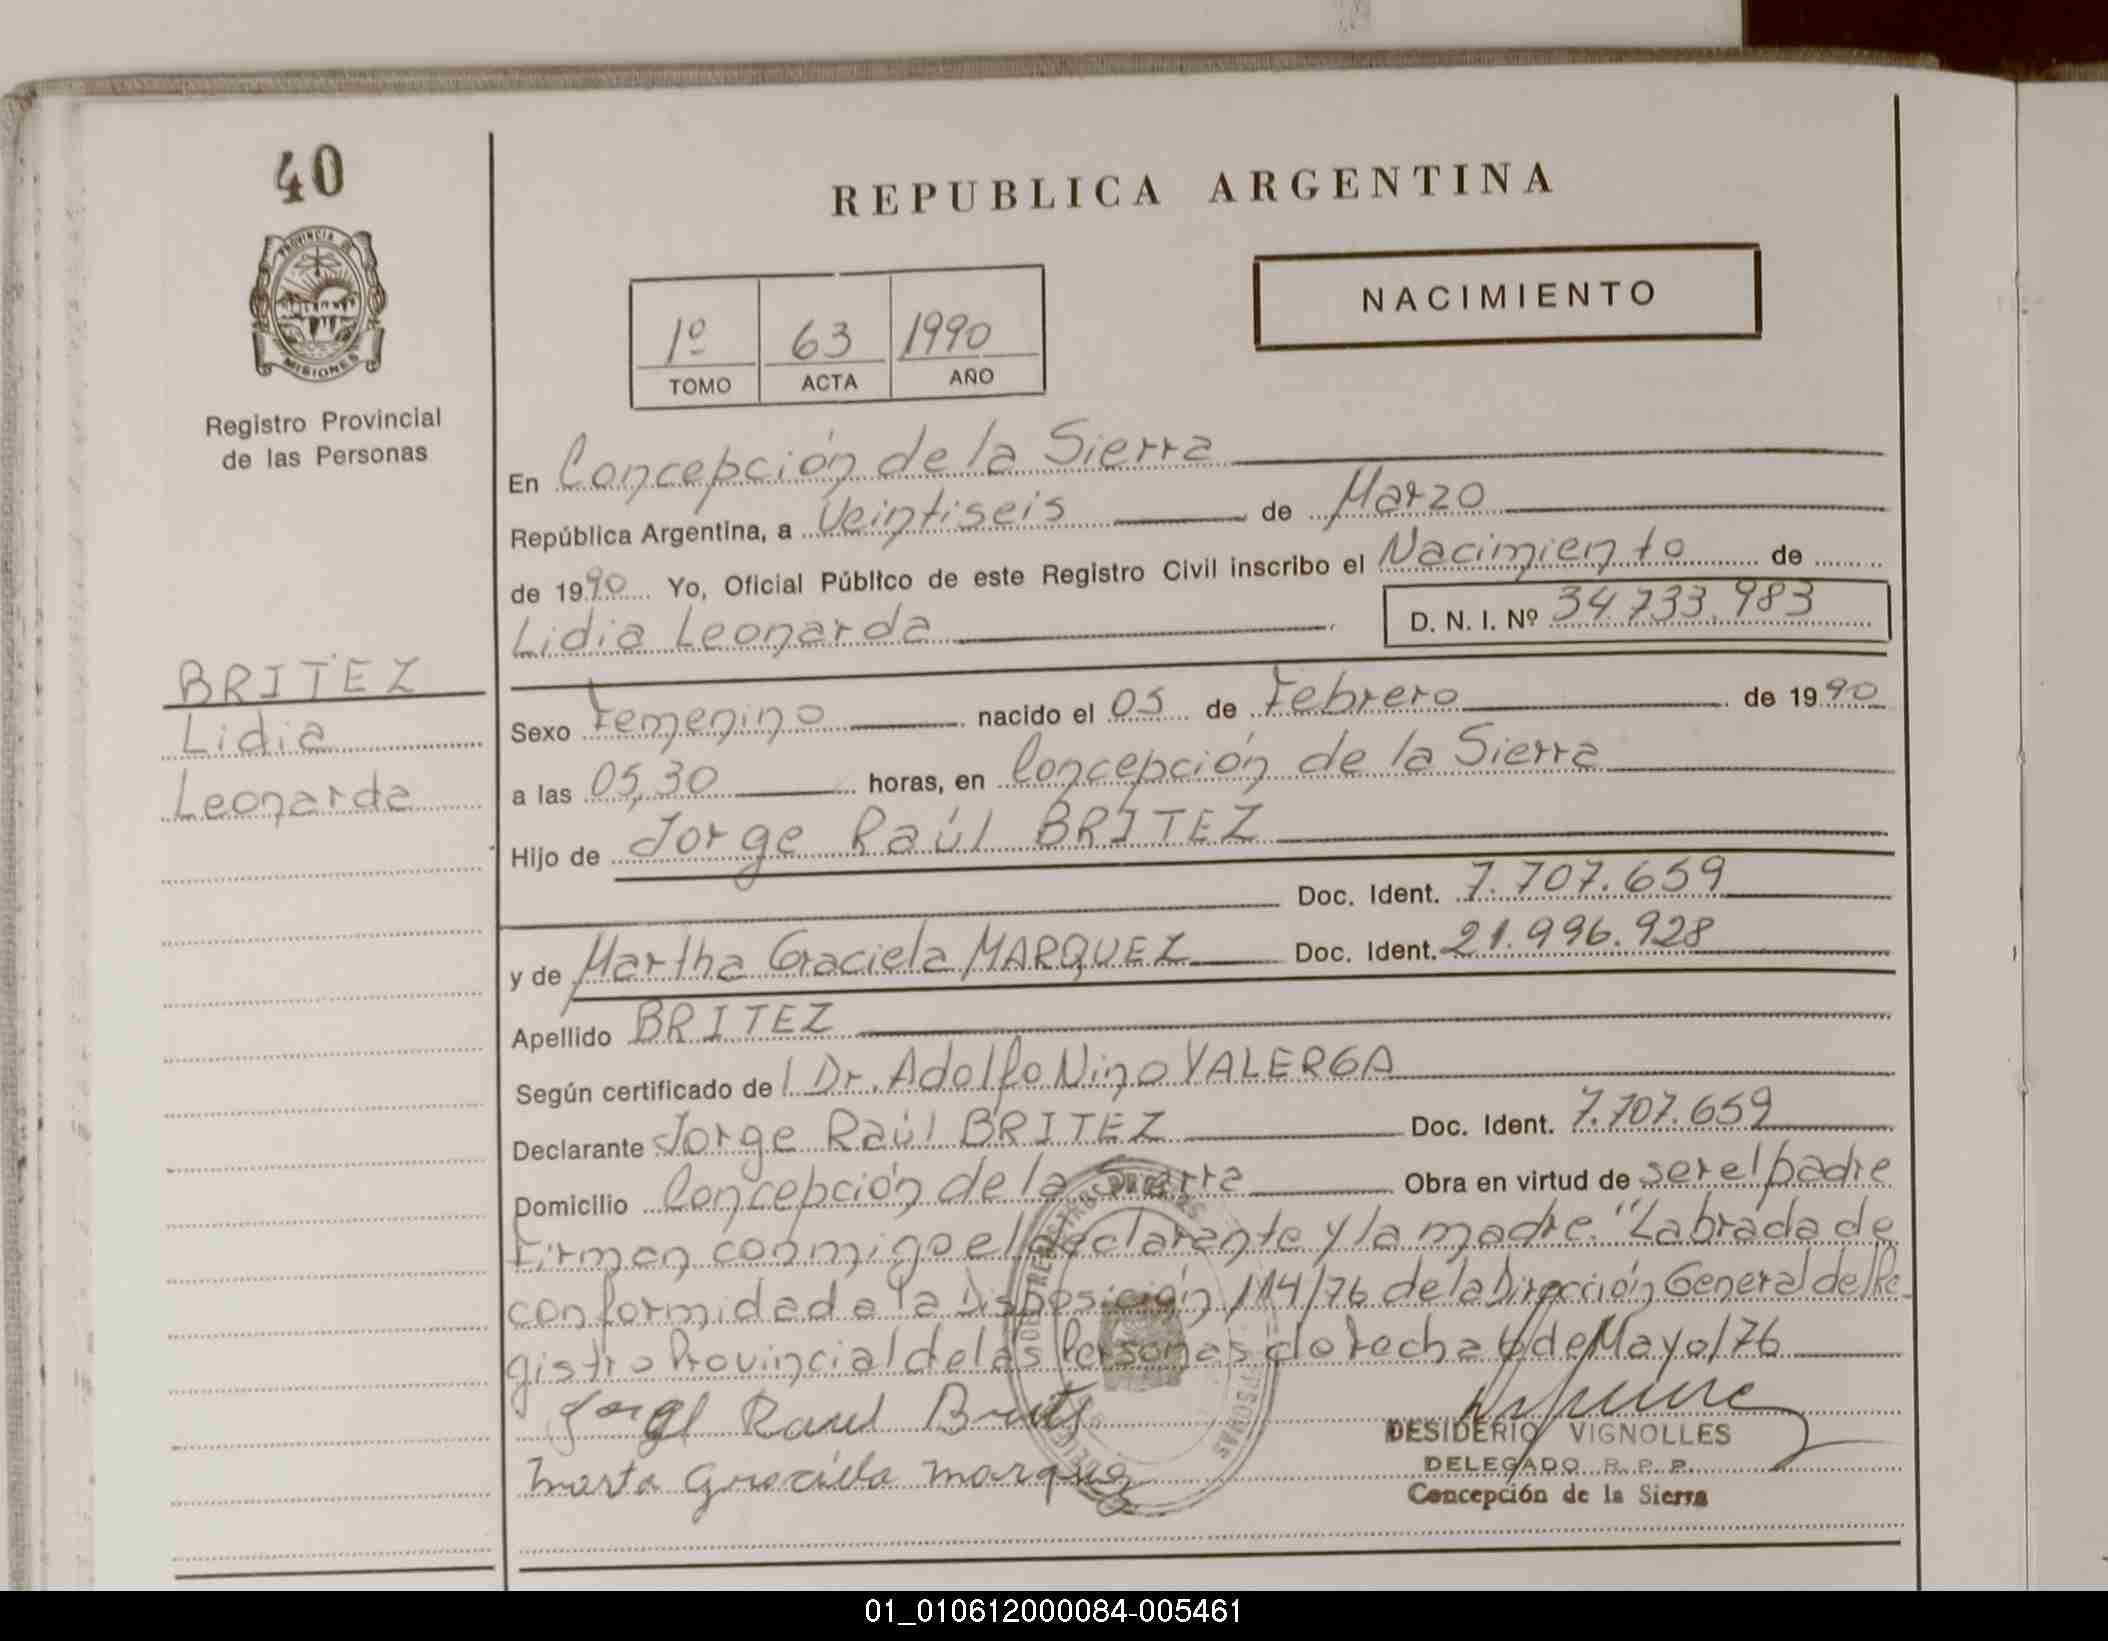 40
PROVINCIA DE
MISIONES
Registro Provincial
de las Personas
BRITEZ
Lidia
Leonarda
REPUBLICA ARGENTINA
NACIMIENTO
1º 63 1990
TOMO ACTA AÑO
En Concepción de la Sierra
República Argentina, a Veintiseis de Marzo
de 1990 Yo, Oficial Público de este Registro Civil inscribo el Nacimiento de
Lidia Leonarda D. N. I. Nº 34.733.983
Sexo Femenino nacido el 05 de Febrero de 1990
a las 05,30 horas, en Concepción de la Sierra
Hijo de Jorge Raúl BRITEZ
Doc. Ident. 7.707.659
y de Martha Graciela MARQUEZ Doc. Ident. 21.996.928
Apellido BRITEZ
Según certificado del Dr. Adolfo Nino VALERGA
Declarante Jorge Raúl BRITEZ Doc. Ident. 7.707.659
Domicilio Concepción de la Sierra Obra en virtud de ser el padre
Firman conmigo el declarante y la madre. "Labrada de
conformidad a la Disposición 114/76 de la Dirección General del Re-
gistro Provincial de las Personas do fecha 6 de Mayo/76
Jorge Raul Britez
Marta Graciela Marquez
DESIDERIO VIGNOLLES
DELEGADO R. P. P.
Concepción de la Sierra
01_010612000084-005461